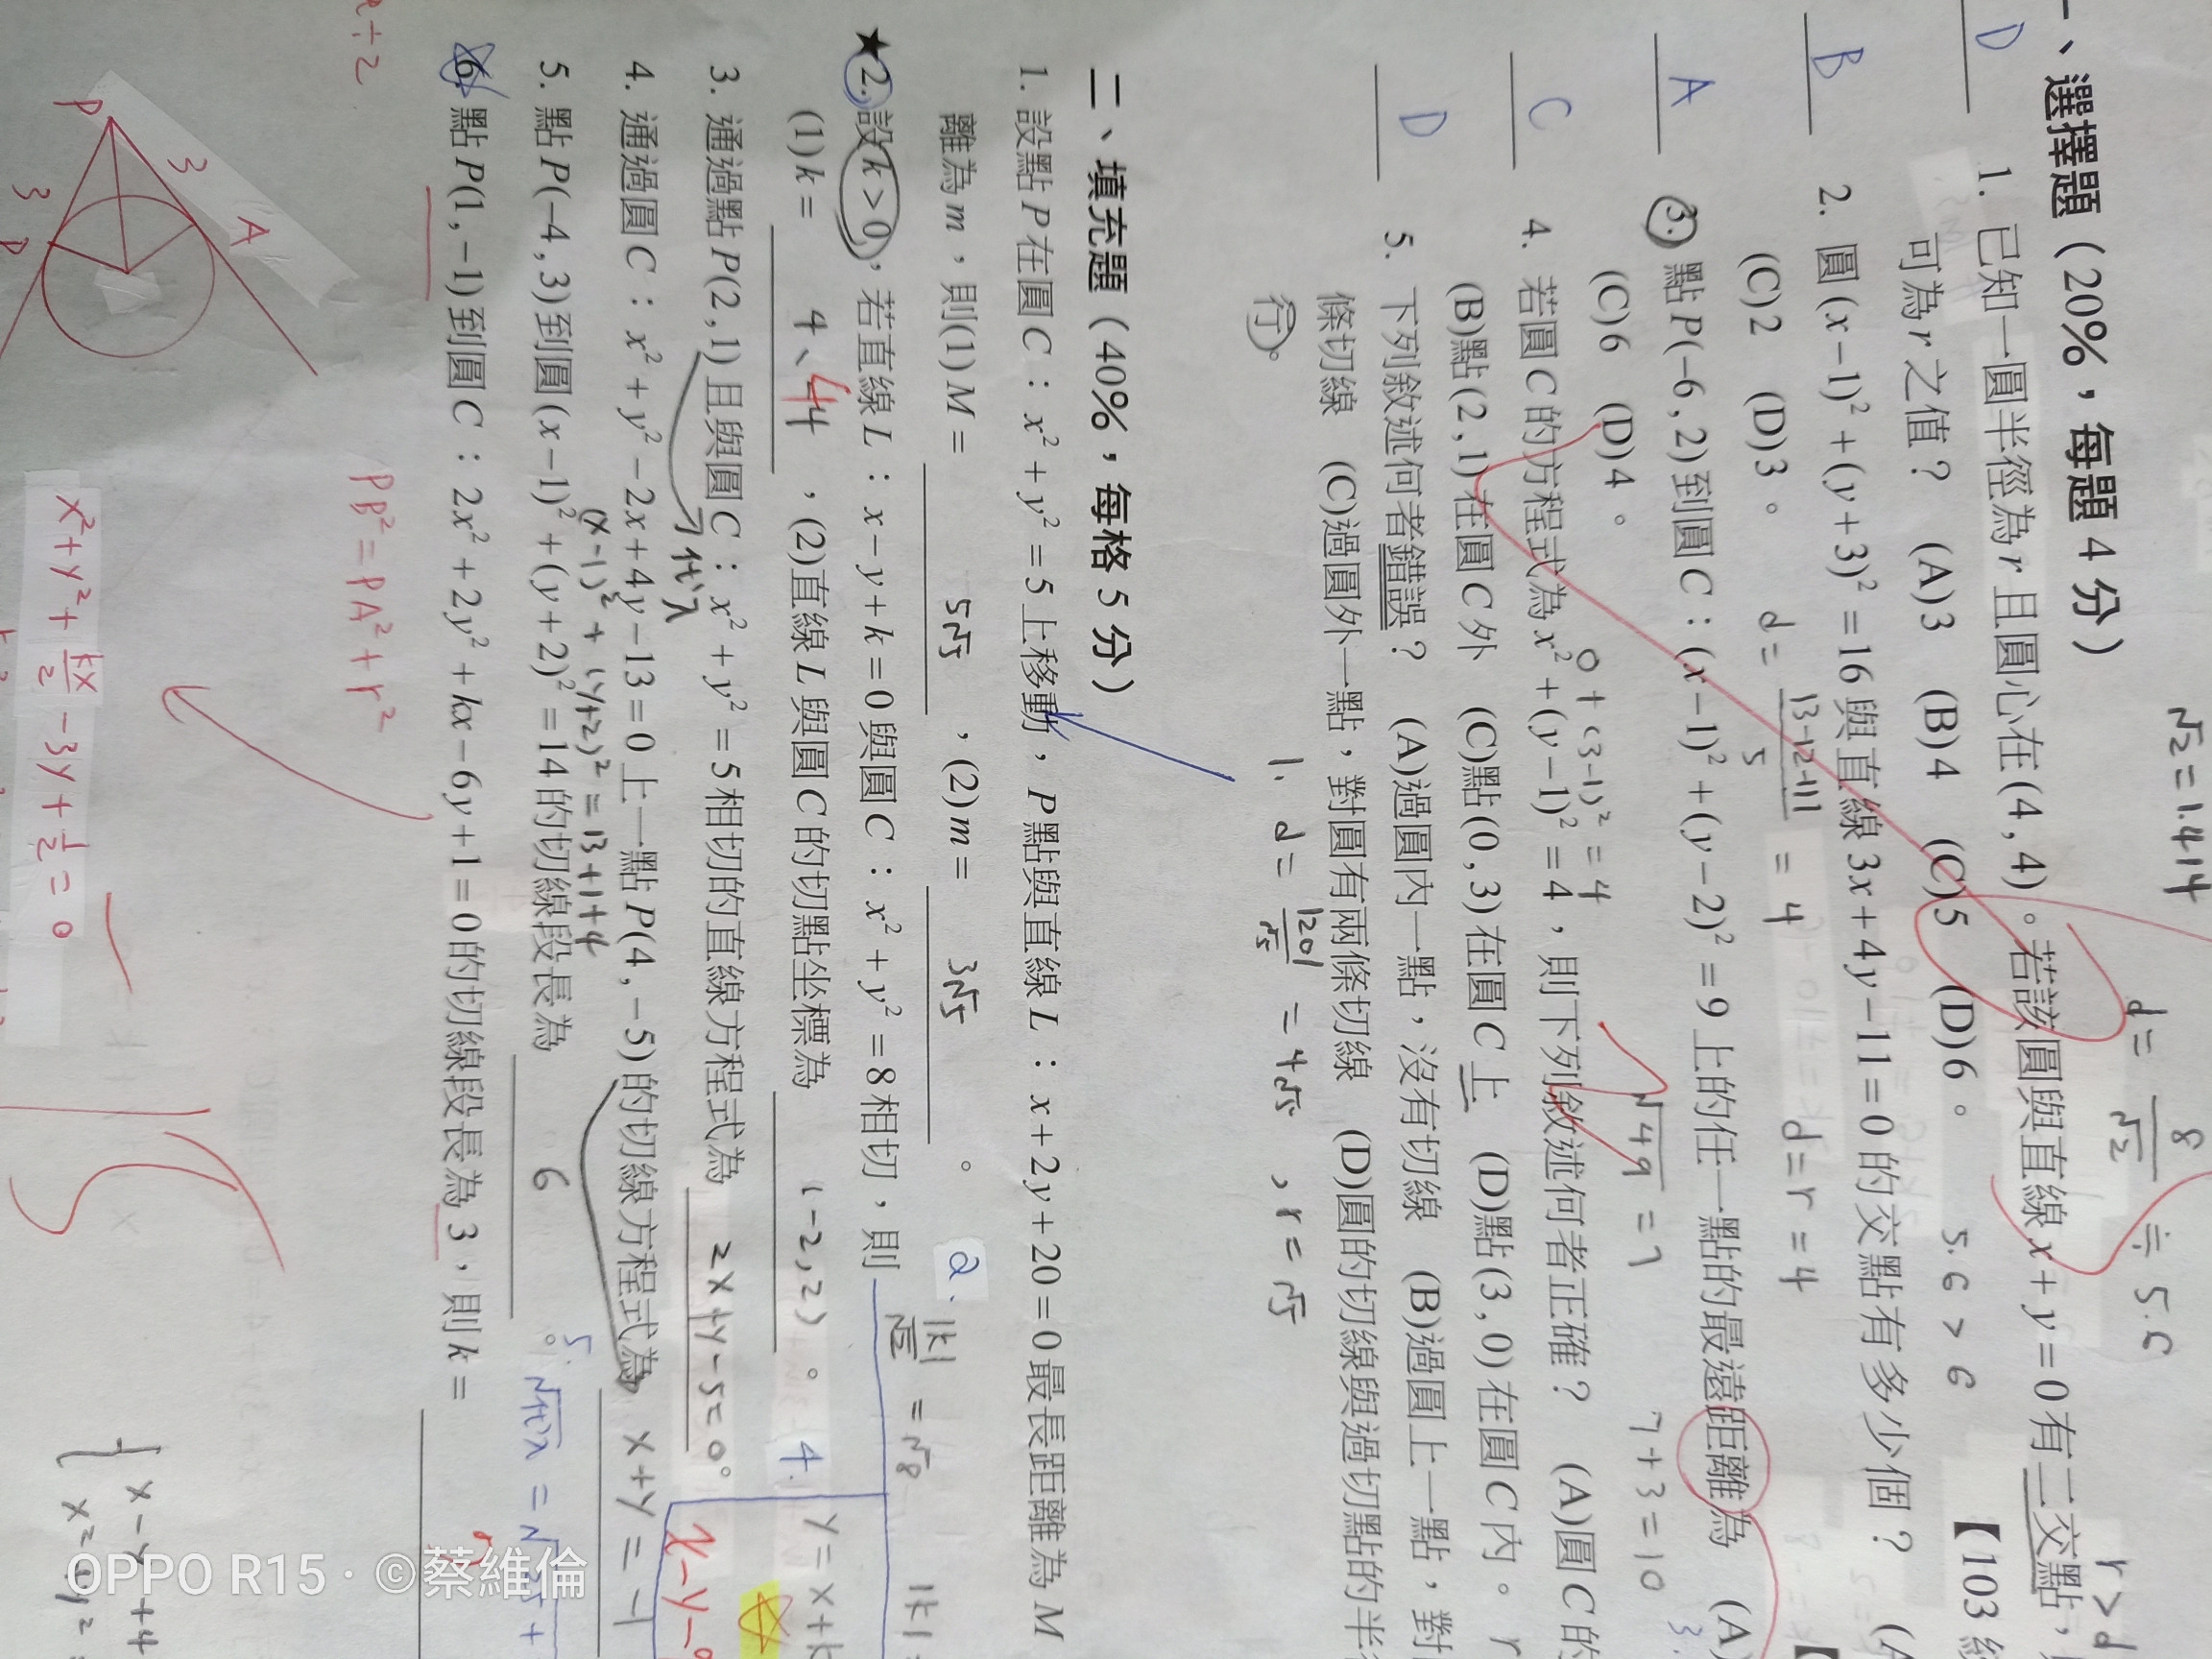 √2 = 1.414
d = 8/√2 ≒ 5.6
r > d
一、選擇題（20%，每題 4 分）
D 1. 已知一圓半徑為 r 且圓心在(4 , 4)。若該圓與直線 x + y = 0 有二交點，
可為 r 之值？ (A)3 (B)4 (C)5 (D)6。 5.6 > 6 【103
B 2. 圓 (x−1)² + (y+3)² = 16 與直線 3x + 4y − 11 = 0 的交點有多少個？
(C)2 (D)3。 d = |3−12−11|/5 = 4 d = r = 4
A 3. 點 P(−6 , 2)到圓 C：(x−1)² + (y−2)² = 9 上的任一點的最遠距離為 (A)
(C)6 (D)4。 √49 = 7 7+3=10
0+(3-1)² = 4
C 4. 若圓 C 的方程式為 x² + (y−1)² = 4，則下列敘述何者正確？ (A)圓 C 的
(B)點(2 , 1)在圓 C 外 (C)點(0 , 3)在圓 C 上 (D)點(3 , 0)在圓 C 內。
D 5. 下列敘述何者錯誤？ (A)過圓內一點，沒有切線 (B)過圓上一點，對
條切線 (C)過圓外一點，對圓有兩條切線 (D)圓的切線與過切點的半
行。
1. d = |20|/√5 = 4√5 , r = √5
二、填充題（40%，每格 5 分）
1. 設點 P 在圓 C：x² + y² = 5 上移動，P 點與直線 L：x + 2y + 20 = 0 最長距離為 M
離為 m，則(1) M = 5√5 ，(2) m = 3√5 。
2. |k|/√2 = √8
★2. 設 k > 0，若直線 L：x − y + k = 0 與圓 C：x² + y² = 8 相切，則
(1) k = 4、4 4 ，(2)直線 L 與圓 C 的切點坐標為 (-2,2) 。
4. y = x + k
3. 通過點 P(2 , 1)且與圓 C：x² + y² = 5 相切的直線方程式為 2x+y-5=0。
代入
4. 通過圓 C：x² + y² − 2x + 4y − 13 = 0 上一點 P(4 , −5)的切線方程式為 x+y=-1
(x-1)² + (y+2)² = 13+1+4
5. 點 P(−4 , 3)到圓 (x−1)² + (y+2)² = 14 的切線段長為 6 。
5. √代入 = √25+
6. 點 P(1 , −1)到圓 C：2x² + 2y² + kx − 6y + 1 = 0 的切線段長為 3，則 k =
÷2
PB² = PA² + r²
P
3
A
3
x² + y² + kx/2 - 3y + 1/2 = 0
x-y+4
OPPO R15 · ©蔡維倫